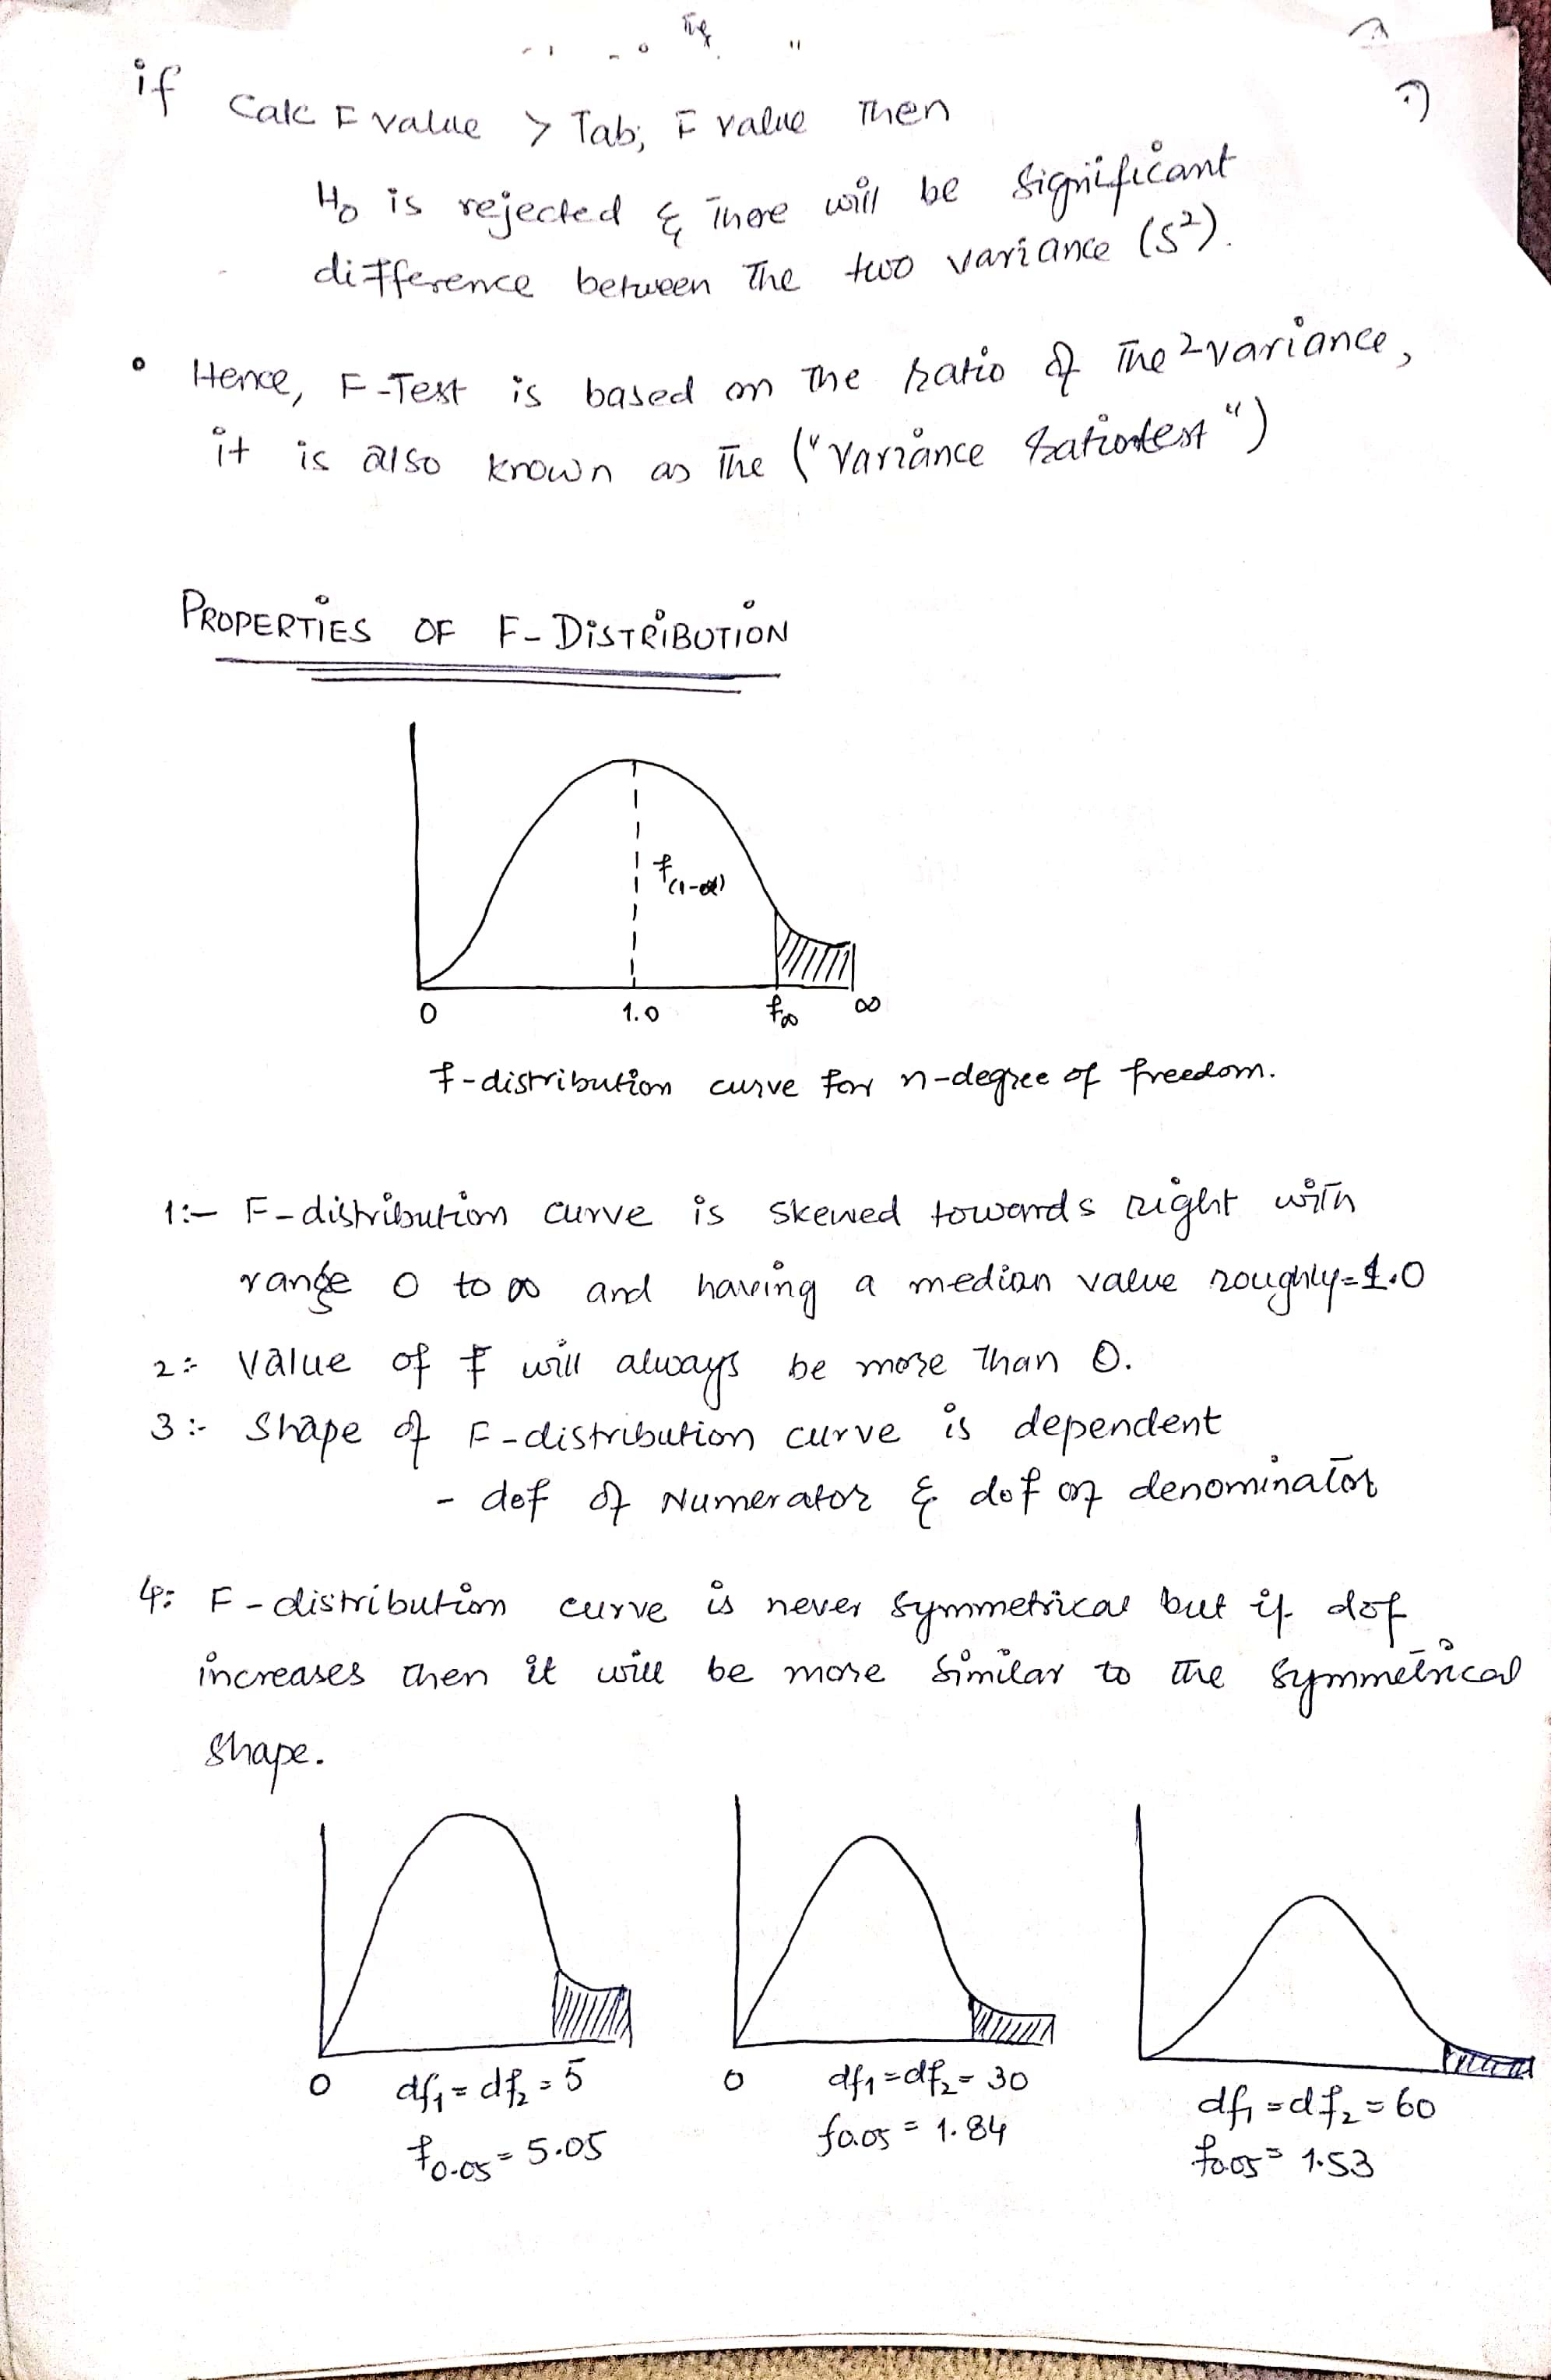 if Calc F value > Tab; F value Then
H₀ is rejected & There will be significant
difference between The two variance (S²).
• Hence, F-Test is based on The ratio of The 2 variance,
it is also known as The ("Variance ratiotest")
PROPERTIES OF F-DISTRIBUTION
f(1-α)
0 1.0 f∞ ∞
f-distribution curve for n-degree of freedom.
1:- F-distribution curve is skewed towards right with
range 0 to ∞ and having a median value roughly=1.0
2:- Value of F will always be more Than 0.
3:- Shape of F-distribution curve is dependent
- dof of Numerator & dof of denominator
4: F-distribution curve is never symmetrical but if dof
increases then it will be more similar to the symmetrical
shape.
0 df₁ = df₂ = 5
f0.05 = 5.05
0 df₁ = df₂ = 30
f0.05 = 1.84
df₁ = df₂ = 60
f0.05 = 1.53